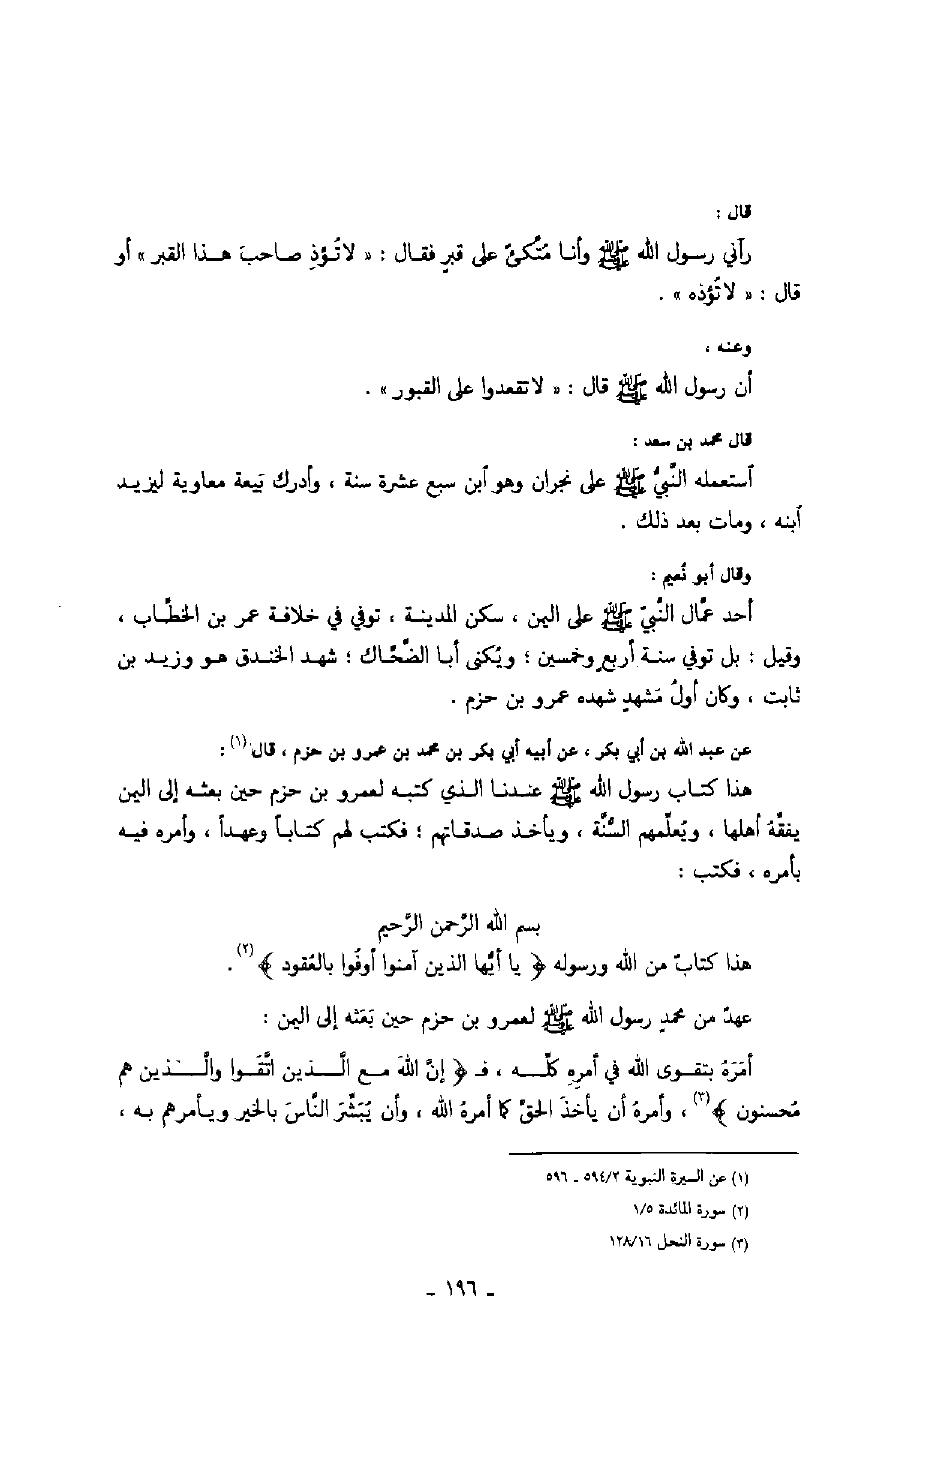 قال :
رآني رسول الله ﷺ وأنا مُتَّكئٌ على قبرٍ فقال : « لا تُؤذِ صاحبَ هذا القبر » أو
قال : « لا تُؤذه » .
وعنه ،
أن رسول الله ﷺ قال : « لا تقعدوا على القبور » .
قال محمد بن سعد :
أستعمله النَّبيُّ ﷺ على نجران وهو أبن سبع عشرة سنة ، وأدرك بَيعة معاوية ليزيد
أبنه ، ومات بعد ذلك .
وقال أبو نُعيم :
أحد عمَّال النَّبيّ ﷺ على اليمن ، سكن المدينة ، توفي في خلافة عمر بن الخطَّاب ،
وقيل : بل توفي سنة أربعٍ وخمسين ؛ ويُكنى أبا الضَّحَّاك ؛ شهد الخندق هو وزيد بن
ثابت ، وكان أولُ مَشهدٍ شهده عمرو بن حزم .
عن عبد الله بن أبي بكر ، عن أبيه أبي بكر بن محمد بن عمرو بن حزم ، قال(١) :
هذا كتاب رسول الله ﷺ عندنا الذي كتبه لعمرو بن حزم حين بعثه إلى اليمن
يفقِّهُ أهلها ، ويُعلِّمهم السُّنَّة ، ويأخذ صدقاتهم ؛ فكتب لهم كتاباً وعهداً ، وأمره فيه
بأمره ، فكتب :
بسم الله الرَّحمن الرَّحيم
هذا كتابٌ من الله ورسوله ﴿ يا أيُّها الذين آمنوا أوفُوا بالعُقود ﴾(٢) .
عهدٌ من محمدٍ رسول الله ﷺ لعمرو بن حزم حين بَعَثه إلى اليمن :
أمَرَهُ بتقوى الله في أمرِه كلِّه ، فـ ﴿ إنَّ اللهَ مع الَّذين اتَّقَوا والَّذين هم
مُحسنون ﴾(٣) ، وأمرهُ أن يأخذَ الحقَّ كما أمرهُ الله ، وأن يُبَشِّرَ النَّاسَ بالخير ويأمرهم به ،
(١) عن السيرة النبوية ٥٩٤/٢ ـ ٥٩٦
(٢) سورة المائدة ١/٥
(٣) سورة النحل ١٢٨/١٦
ـ ١٩٦ ـ